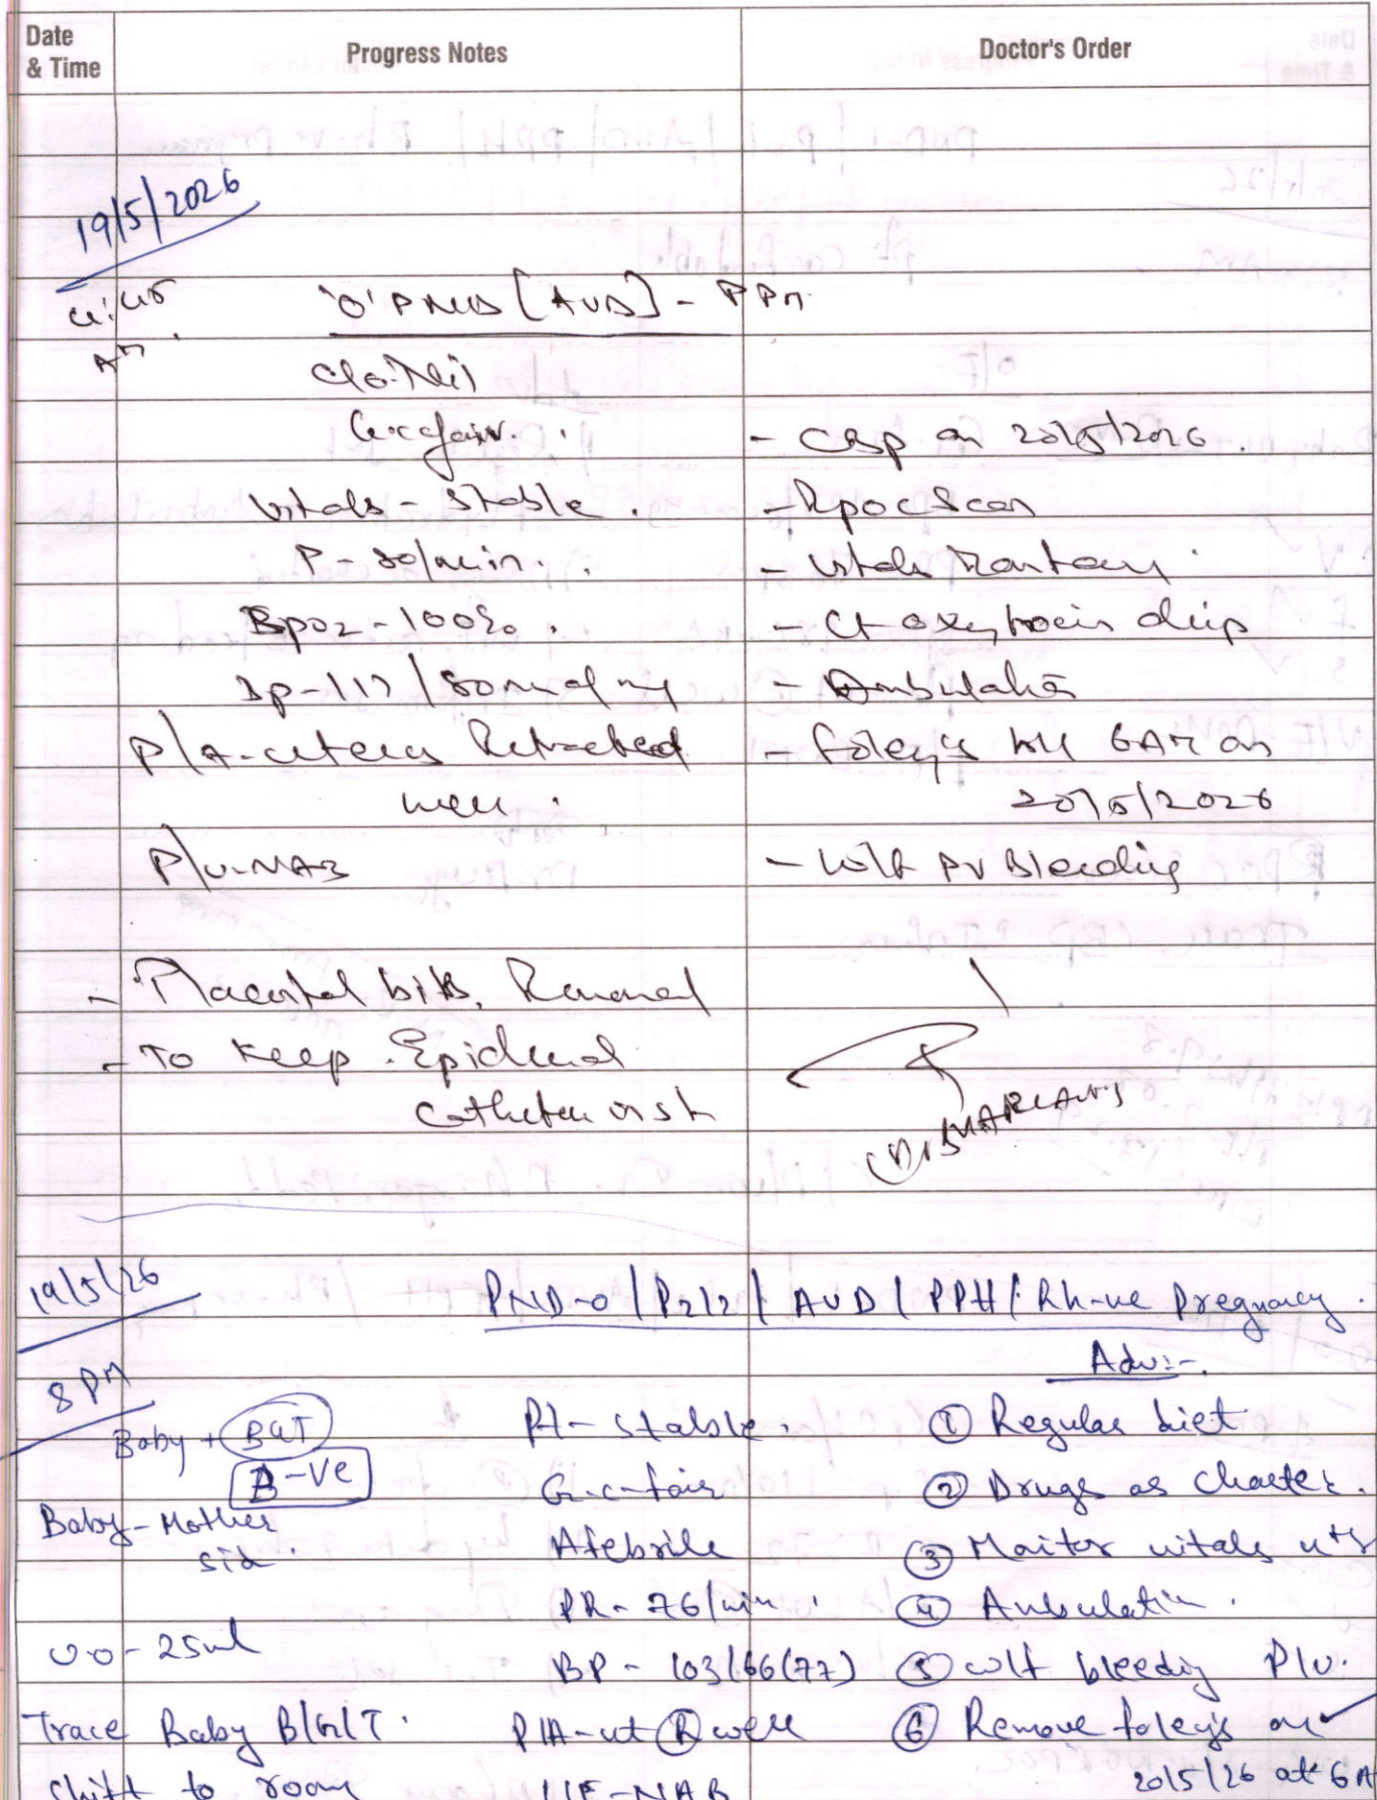 Date & Time
Progress Notes
Doctor's Order
19/5/2026
AM
'0' PND [AVD] - PPH
c/o. Nil
Gc fair.
- CBP on 20/5/2026.
Vitals - stable.
- Rpoc Scan
P - 80/min.
- Vitals Monitoring
Spo2 - 100%.
- Ct oxytocin drip
Bp - 117/80 mm of Hg
- Ambulation
P/A - uterus Retracted well.
- Foleys till 6AM on 20/5/2026
P/V - NAB
- W/f PV Bleeding
- Placental bits, Removed
- To Keep Epidural Catheter insitu
19/5/26
PND-0 / P2L2 / AVD / PPH / Rh-ve Pregnancy.
8 PM
Adv:-
Baby + BGT
Pt - Stable.
① Regular diet
-Ve
G.c - fair
② Drugs as charted.
Baby - Mother side.
Afebrile
③ Monitor vitals
PR - 76/min.
④ Ambulation.
UO - 25ml
BP - 103/66(77)
⑤ w/f bleeding P/V.
Trace Baby B/G/T.
P/A - ut Ⓡ well
⑥ Remove foley's on
shift to room
L/E - NAB
20/5/26 at 6 A